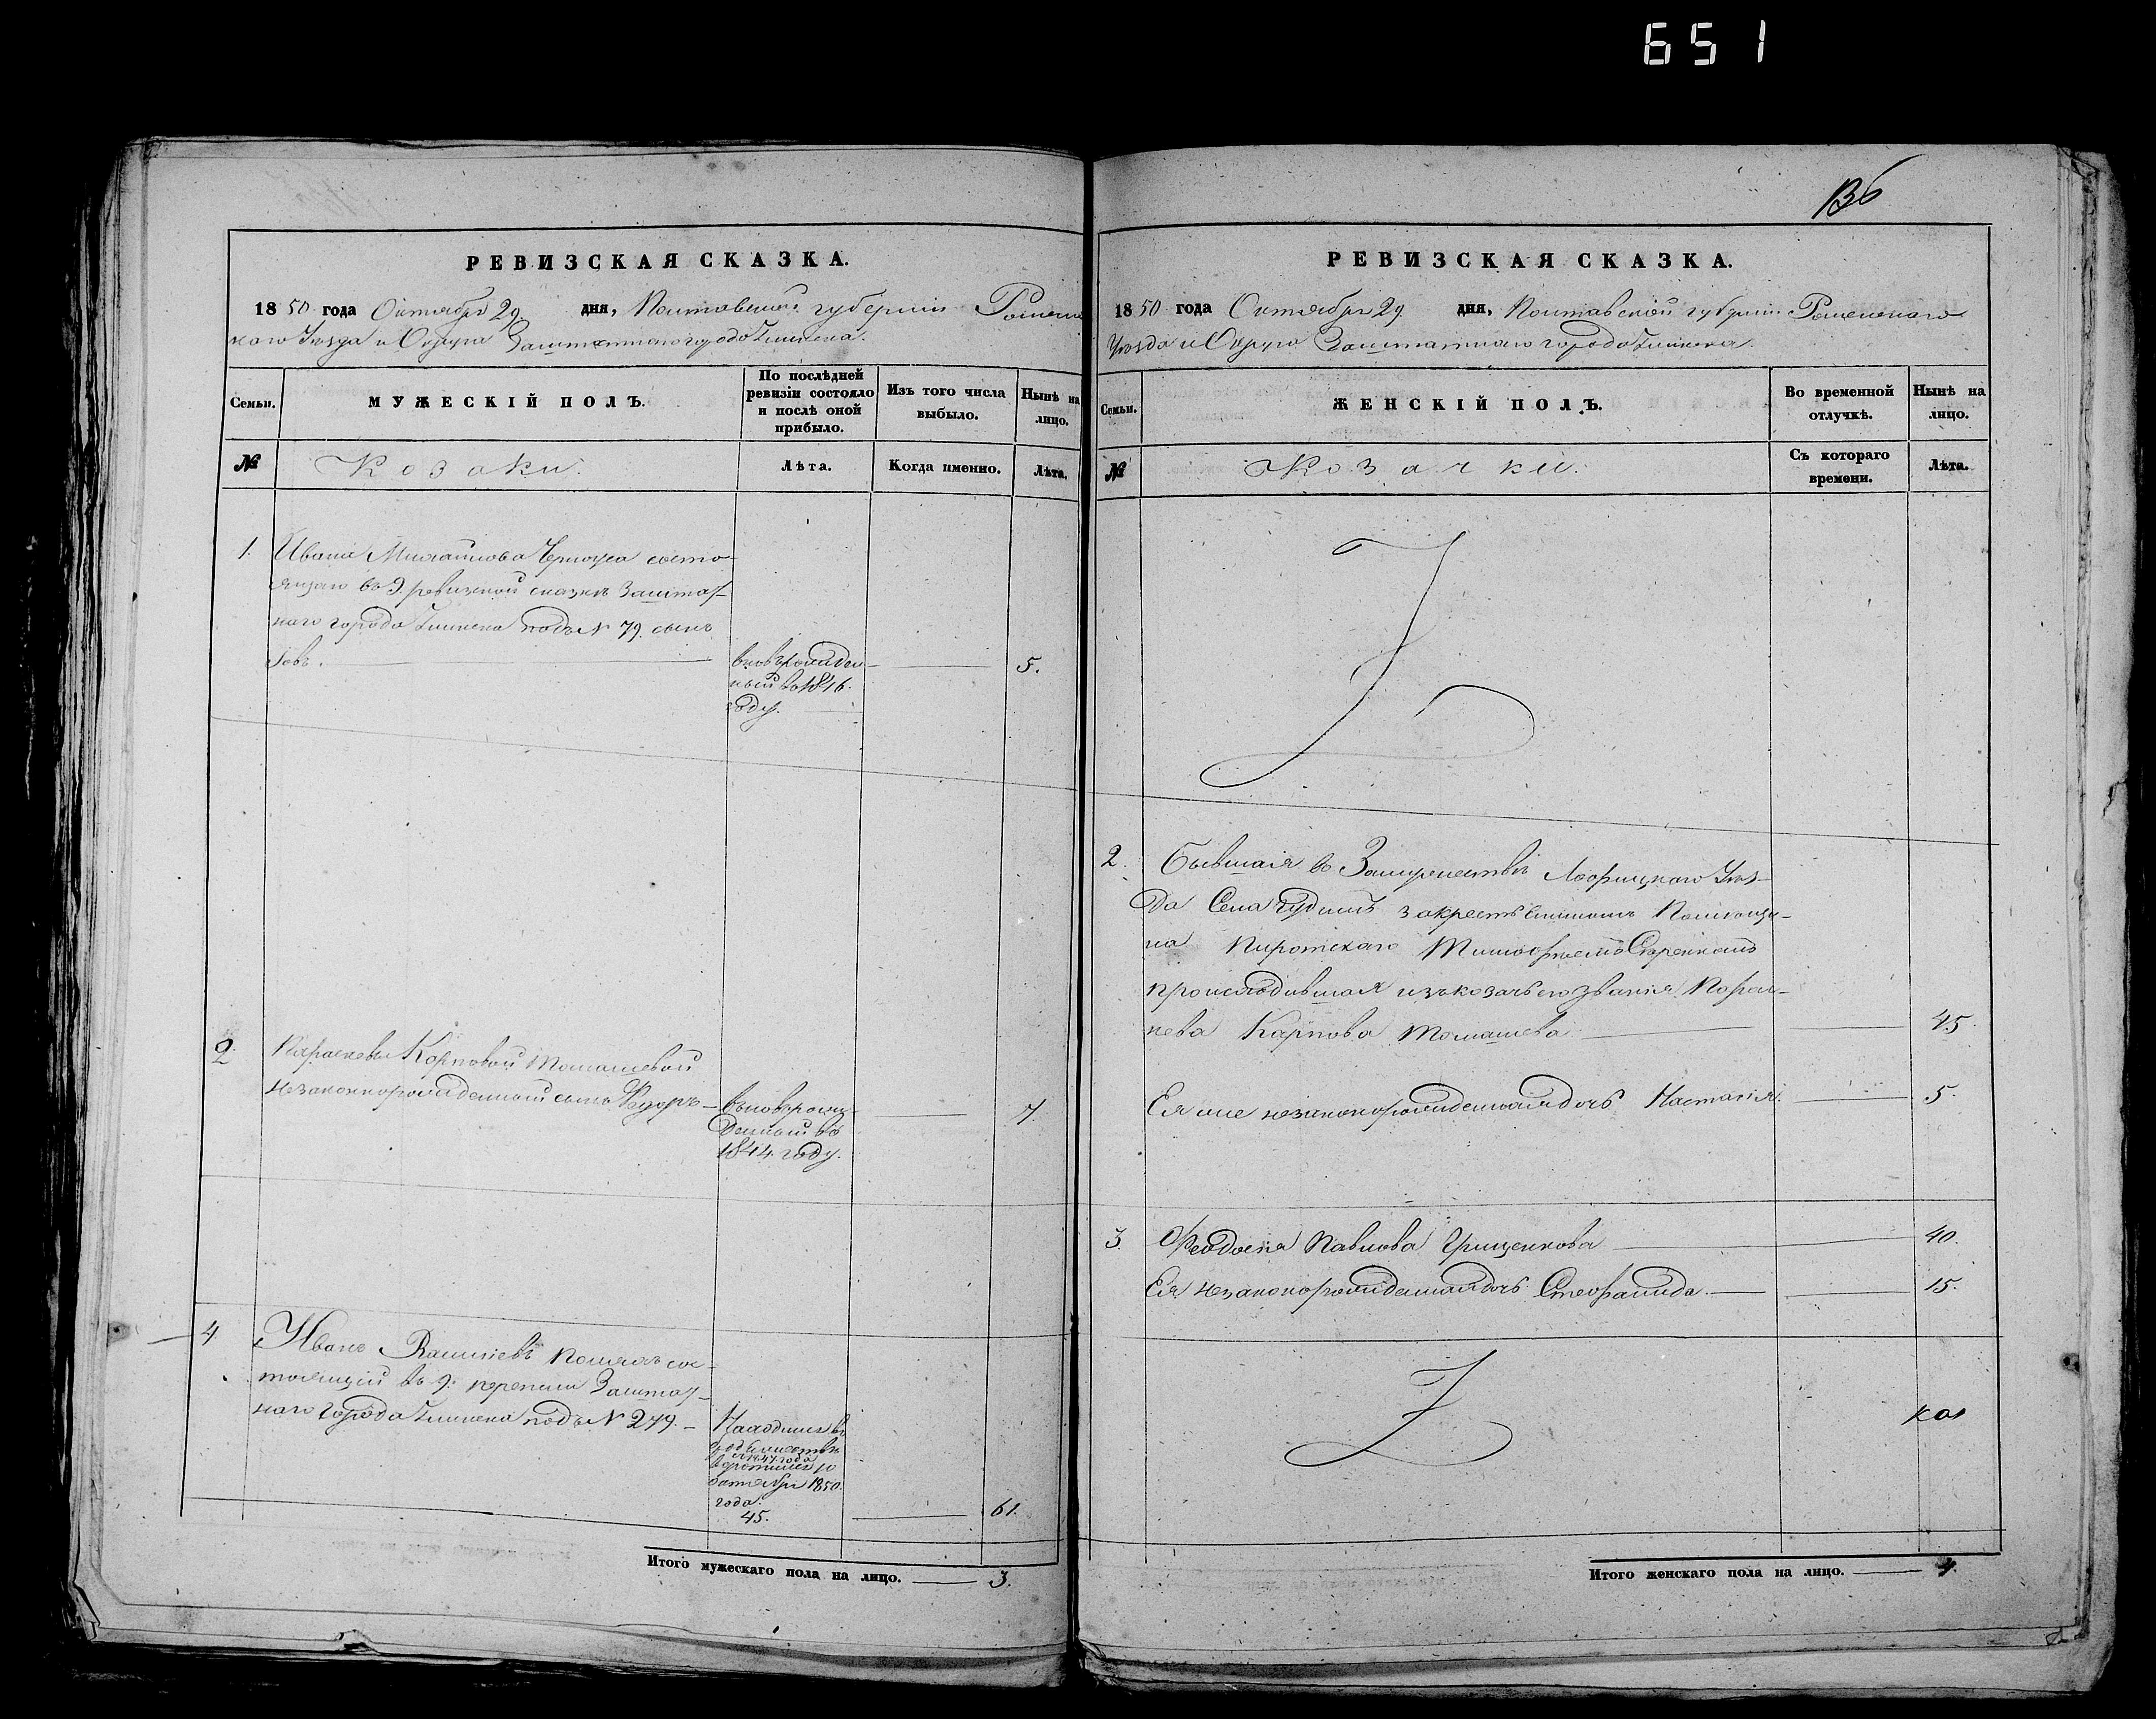 651
136
РЕВИЗСКАЯ СКАЗКА.
1850 года Октября 29 дня, Полтавской губерніи Ромен
каго Уѣзда и Округа Заштатнаго города Глинска.
Семьи.
МУЖЕСКІЙ ПОЛЪ.
По послѣдней ревизіи состояло и послѣ оной прибыло.
Изъ того числа выбыло.
Нынѣ на лицо.
№
Козаки.
Лѣта.
Когда именно.
Лѣта.
1. Ивана Михайлова состо-
ящаго въ 9 ревизской сказкѣ Заштат-
наго города Глинска подъ № 79. сынъ
Іовъ. вновьрожден- 5.
ный въ 1846
году.
2 Параскевы Карповой Томашевой
незаконнорожденный сынъ Федоръ вновьрож- 7.
денный въ
1844 году.
4 Иванъ сос-
тоящій въ 9. переписи Заштат-
наго города Глинска подъ № 279. Находился въ
10
1850
года.
45. 61.
Итого мужескаго пола на лицо. 3.
РЕВИЗСКАЯ СКАЗКА.
1850 года Октября 29 дня, Полтавской губерніи Роменскаго
Уѣзда и Округа Заштатнаго города Глинска.
Семьи.
ЖЕНСКІЙ ПОЛЪ.
Во временной отлучкѣ.
Нынѣ на лицо.
№
Козачки.
Съ котораго времени.
Лѣта.
2. Бывшая въ Замужествѣ Уѣз-
да Села за крестьяниномъ Помѣщи-
ка
происходившая изъ козачьего званія Парас-
кева Карпова Томашева 45.
Ея же незаконорожденная дочь Настасія. 5.
3. Феодосія Павлова Грищенкова 40.
Ея незаконорожденная дочь Стефанида. 15.
Итого женскаго пола на лицо. 4.